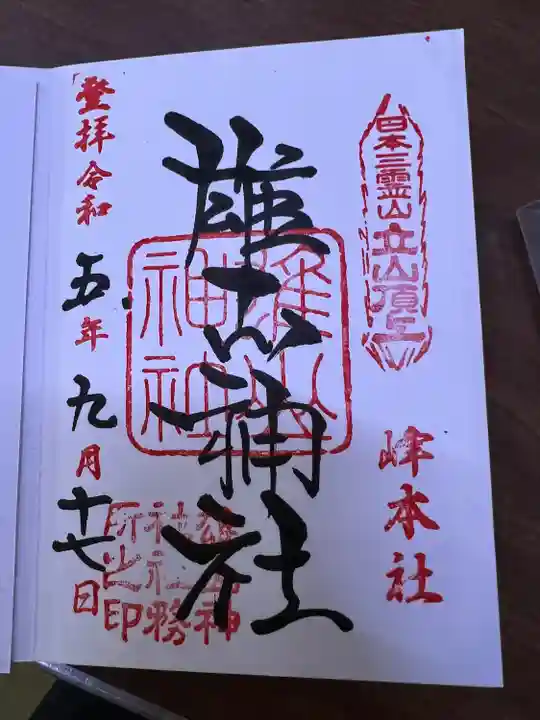 日本三霊山立山頂上
峰本社
雄山神社
雄山
神社
雄山神
社社務
所之印
登拝令和五年九月十七日